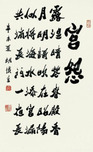 宫怨
露濕晴花春殿香
月明歌吹在昭陽
似將海水添宮漏
共滴長門一夜長